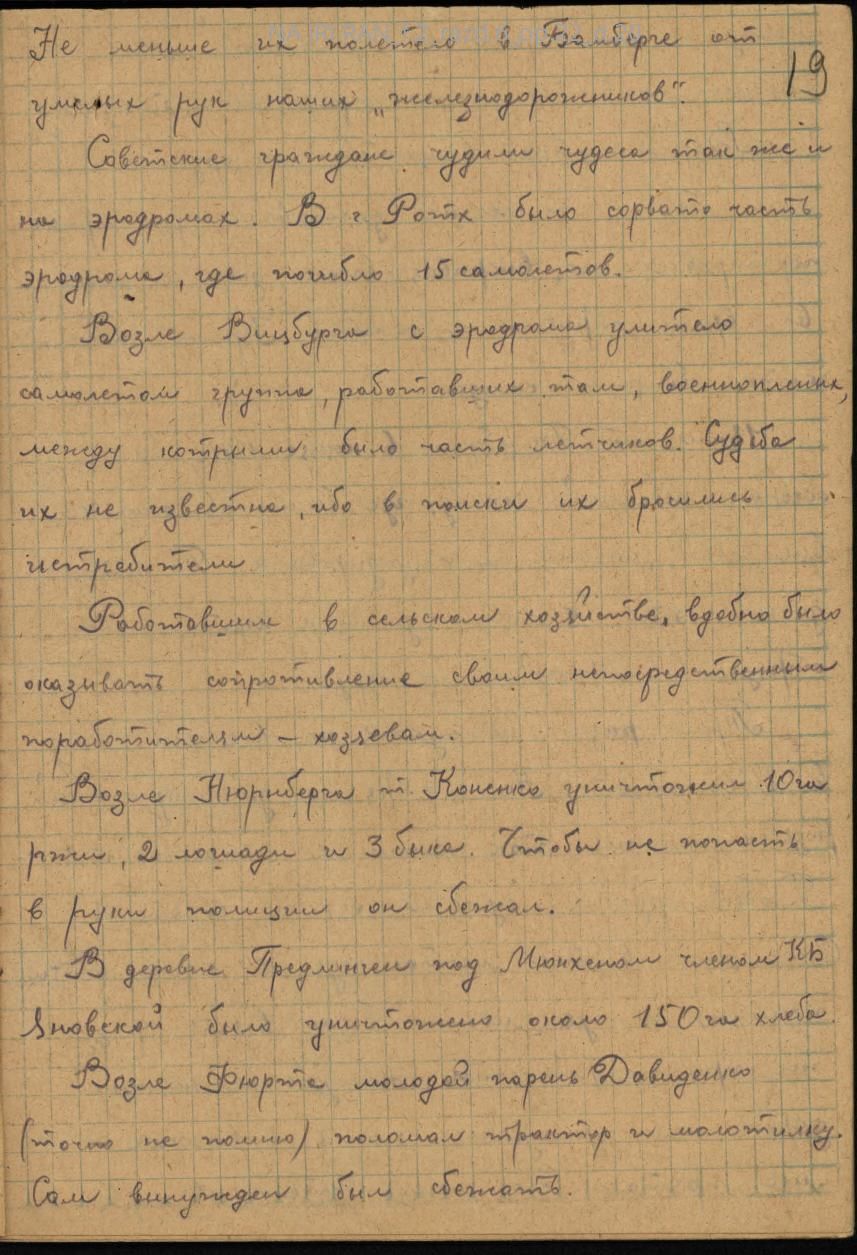 19
Не меньше их полетело в Бамберге от
умелых рук наших „железнодорожников".
Советские граждане чудили чудеса так же и
на эродромах. В г Ротх было сорвато часть
эродрома, где погибло 15 самолетов.
Возле Вицбурга с эродрома улитело
самолетом группа, работавших там, военнопленых,
между котрыми было часть летчиков. Судьба
их не известна, ибо в поиски их бросились
истребители
Работавшим в сельском хозяйстве, вдобно было
оказывать сопротивление своим непосредственным
поработителям – хозяевам.
Возле Нюрнберга т. Коненко уничтожил 10 га
ржи, 2 лошади и 3 быка. Чтобы не попасть
в руки полиции он сбежал.
В деревне Предлинген под Мюнхеном членом КБ
Яновской было уничтожено около 150 га хлеба.
Возле Фюрте молодой парень Давиденко
(точно не помню) поломал трактор и молотилку.
Сам вынужден был сбежать.